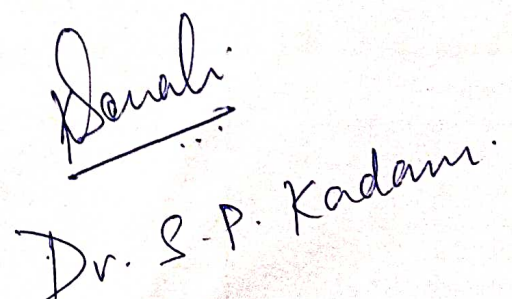 Sonali.
Dr. S.P. Kadam.